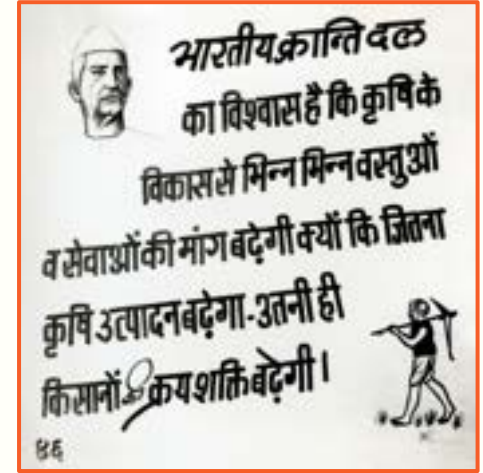 भारतीय क्रान्ति दल
का विश्वास है कि कृषि के
विकास से भिन्न भिन्न वस्तुओं
व सेवाओं की मांग बढ़ेगी क्यों कि जितना
कृषि उत्पादन बढ़ेगा-उतनी ही
किसानों क्रय शक्ति बढ़ेगी।
४६